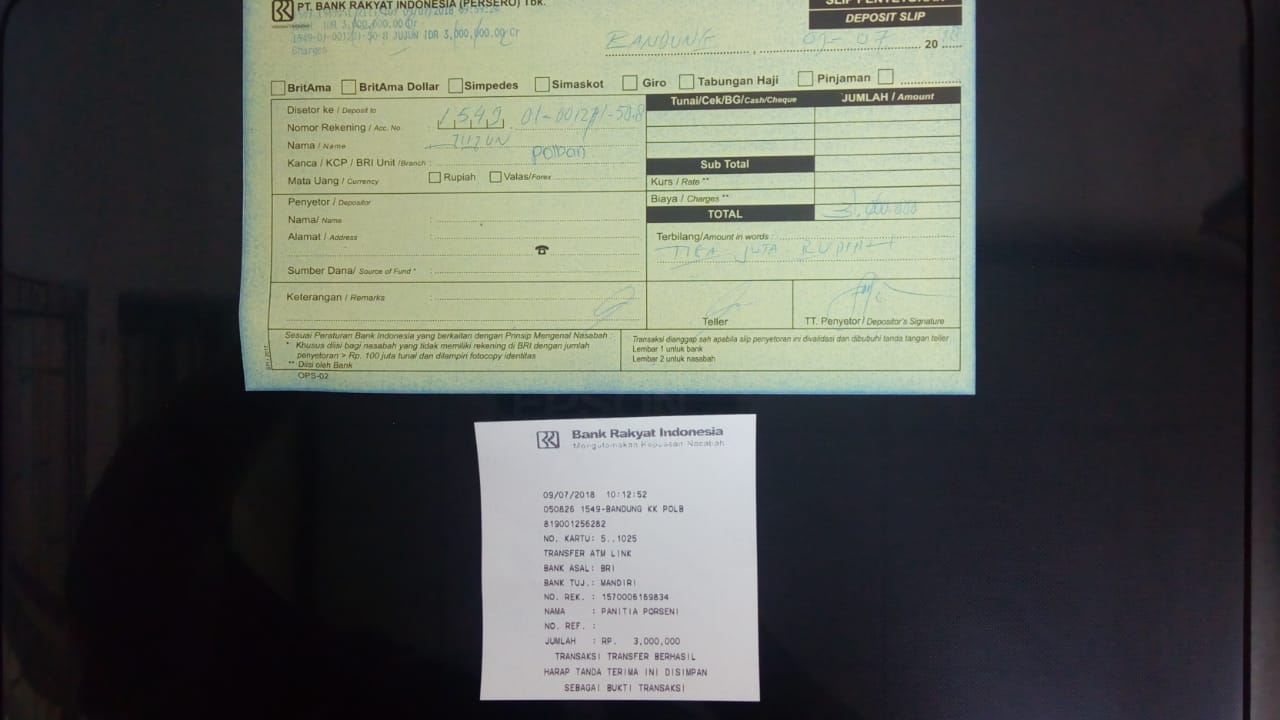 BRI PT. BANK RAKYAT INDONESIA (PERSERO) Tbk.
SLIP PENYETORAN
DEPOSIT SLIP
09/07/2018
IDR 3,000,000.00 Cr
1549-01-001201-50-8 JUJUN IDR 3,000,000.00 Cr
Charges
BANDUNG , 09-07 20 18
BritAma BritAma Dollar Simpedes Simaskot Giro Tabungan Haji Pinjaman
Disetor ke / Deposit to
Nomor Rekening / Acc. No. : 1549 01-001201-50.8
Nama / Name : JUJUN
Kanca / KCP / BRI Unit /Branch : Polban
Mata Uang / Currency Rupiah Valas/Forex
Penyetor / Depositor
Nama/ Name :
Alamat / Address :
☎
Sumber Dana/ Source of Fund * :
Keterangan / Remarks :
Tunai/Cek/BG/Cash/Cheque JUMLAH / Amount
Sub Total
Kurs / Rate **
Biaya / Charges **
TOTAL 3.000.000
Terbilang/Amount in words :
TIGA JUTA RUPIAH
Teller
TT. Penyetor / Depositor's Signature
Sesuai Peraturan Bank Indonesia yang berkaitan dengan Prinsip Mengenal Nasabah :
* Khusus diisi bagi nasabah yang tidak memiliki rekening di BRI dengan jumlah
penyetoran > Rp. 100 juta tunai dan dilampiri fotocopy identitas
** Diisi oleh Bank
OPS-02
Transaksi dianggap sah apabila slip penyetoran ini divalidasi dan dibubuhi tanda tangan teller
Lembar 1 untuk bank
Lembar 2 untuk nasabah
EPSON
BRI Bank Rakyat Indonesia
Mengutamakan Kepuasan Nasabah
09/07/2018 10:12:52
050826 1549-BANDUNG KK POLB
819001256282
NO. KARTU: 5..1025
TRANSFER ATM LINK
BANK ASAL: BRI
BANK TUJ.: MANDIRI
NO. REK. : 1570006169834
NAMA : PANITIA PORSENI
NO. REF. :
JUMLAH : RP. 3,000,000
TRANSAKSI TRANSFER BERHASIL
HARAP TANDA TERIMA INI DISIMPAN
SEBAGAI BUKTI TRANSAKSI